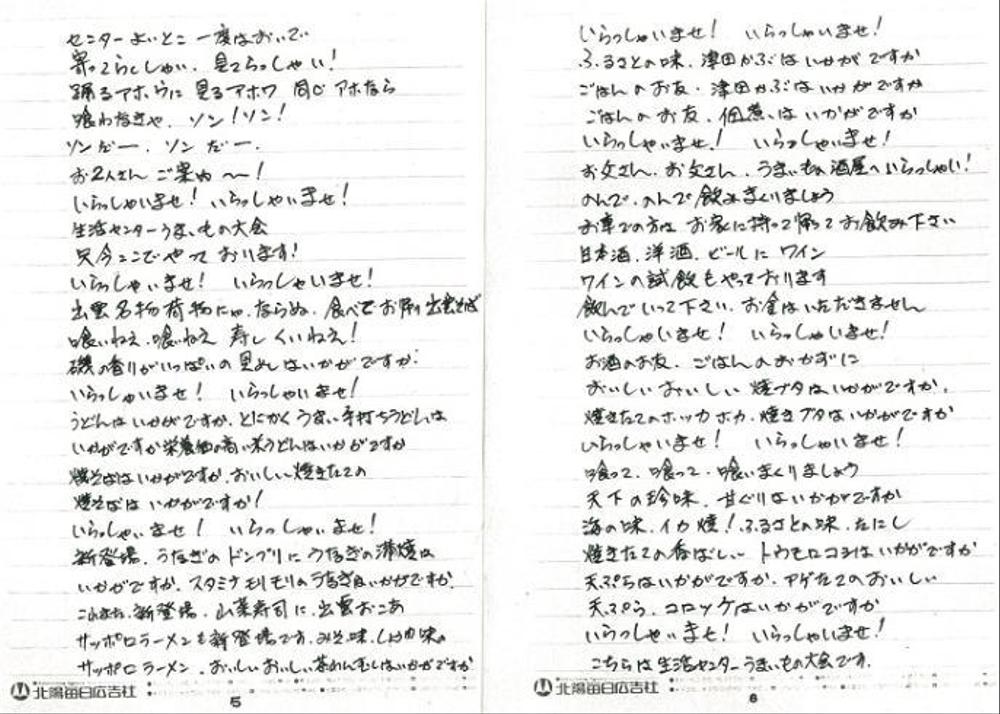 センターよいとこ 一度はおいで
寄ってらっしゃい、見てらっしゃい!
踊るアホウに 見るアホウ 同じアホなら
喰わなきゃ、ソン!ソン!
ソンだー、ソンだー、
お2人さん ご案内〜!
いらっしゃいませ! いらっしゃいませ!
生活センターうまいもの大会
只今ここでやっております!
いらっしゃいませ! いらっしゃいませ!
出雲名物荷物にゃ、ならぬ、食べてお帰り出雲そば
喰いねえ、喰いねえ 寿しくいねえ!
磯の香りがいっぱいの 見よしはいかがですか!
いらっしゃいませ! いらっしゃいませ!
うどんはいかがですか、とにかくうまい手打ちうどんは
いかがですか栄養価の高い うどんはいかがですか
焼そばはいかがですか、おいしい焼きたての
焼そばは いかがですか!
いらっしゃいませ! いらっしゃいませ!
新登場、うなぎのドンブリに うなぎの蒲焼は
いかがですか、スタミナモリモリのうなぎはいかがですか、
これまた、新登場、山菜寿司に、出雲おこわ
サッポロラーメンも新登場です、みそ味、しょうゆ味の
サッポロラーメン、おいしいおいしい茶わんむしはいかがですか
北陽毎日広告社
5
いらっしゃいませ! いらっしゃいませ!
ふるさとの味、津田かぶはいかがですか
ごはんのお友、津田かぶはいかがですか
ごはんのお友、佃煮はいかがですか
いらっしゃいませ! いらっしゃいませ!
お父さん、お父さん、うまいもの酒屋へいらっしゃい!
のんで、のんで飲みまくりましょう
お車での方は お家に持って帰ってお飲み下さい
日本酒、洋酒、ビールに ワイン
ワインの試飲もやっております
飲んでいって下さい、お金はいただきません
いらっしゃいませ! いらっしゃいませ!
お酒のお友、ごはんのおかずに
おいしいおいしい 焼ブタはいかがですか、
焼きたてのホッカホカ、焼きブタはいかがですか
いらっしゃいませ! いらっしゃいませ!
喰って、喰って、喰いまくりましょう
天下の珍味、甘ぐりはいかがですか
海の味、イカ焼!ふるさとの味、たにし
焼きたての香ばしい トウモロコシはいかがですか
天ぷらはいかがですか、アゲたてのおいしい
天ぷら、コロッケはいかがですか
いらっしゃいませ! いらっしゃいませ!
こちらは生活センターうまいもの大会です、
北陽毎日広告社
6